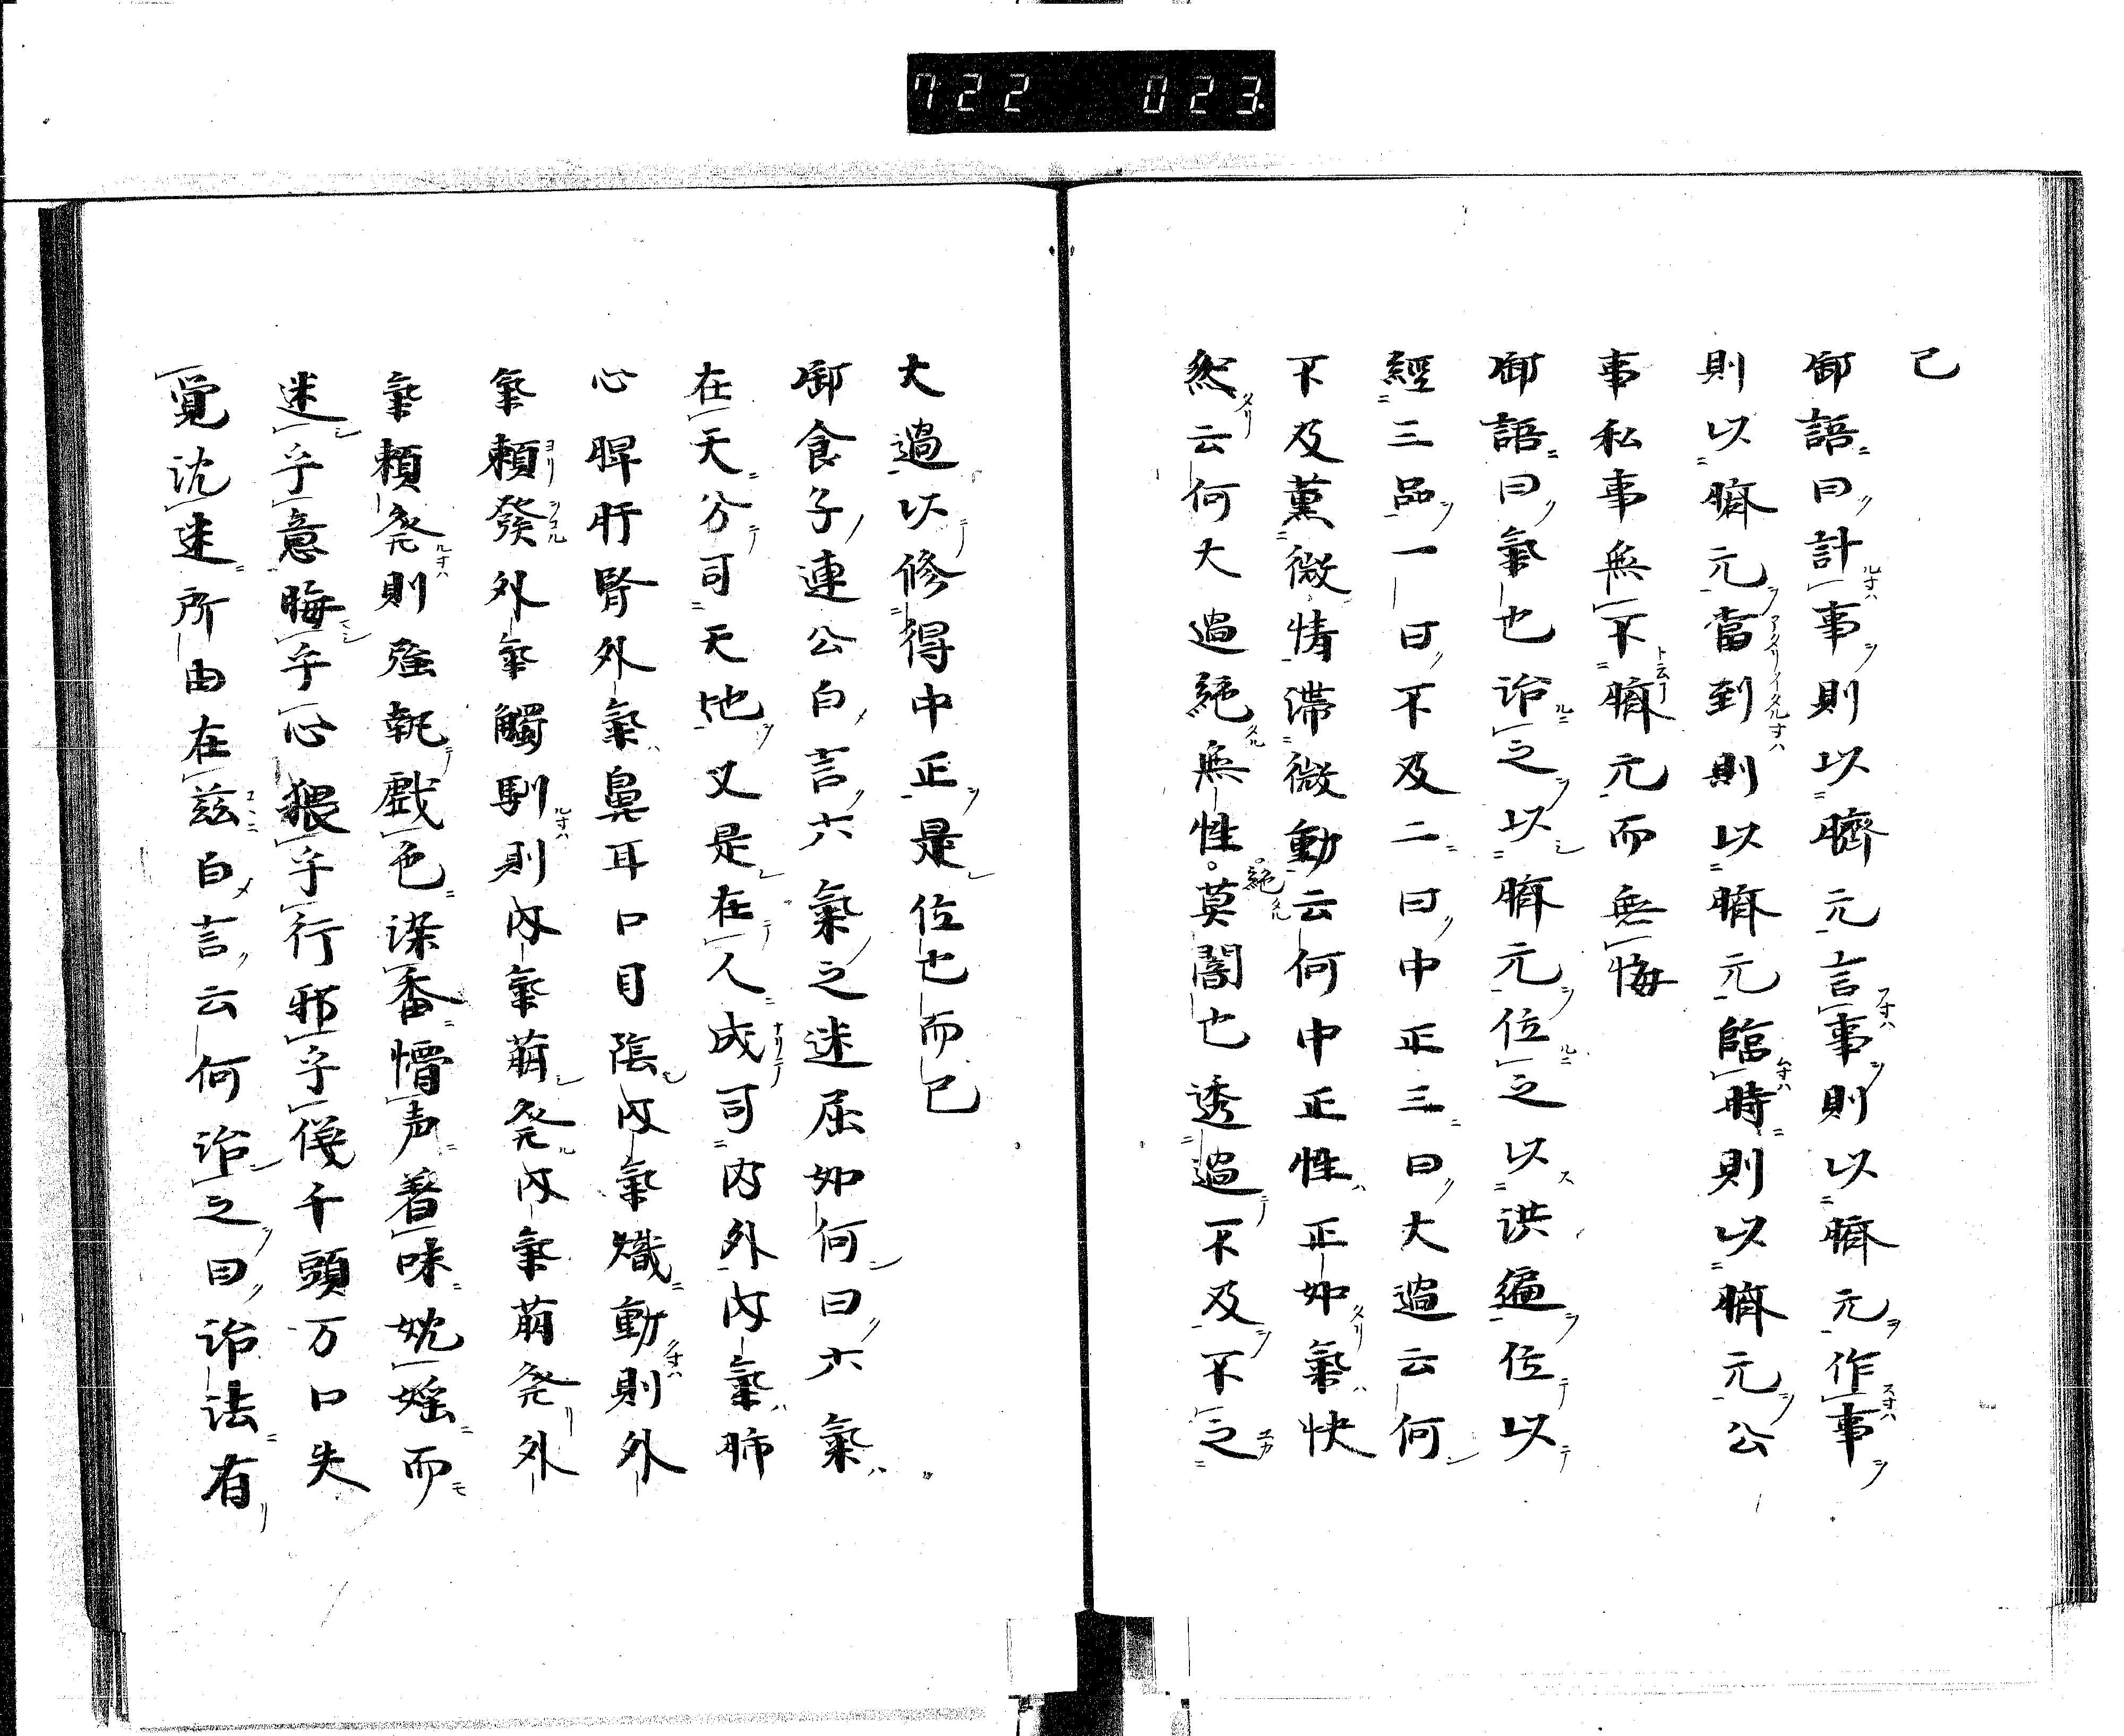 722 023.
已
御語曰計事則以臍元言事則以臍元作事
則以臍元當到則以臍元臨時則以臍元公
事私事無不臍元而無悔
御語曰氣也治之以臍元位之以洪遍位以
經三品一曰不及二曰中正三曰大過云何
不及薫微情滞微動云何中正性正如氣快
然云何大過絕無性莫闇也透過不及不之
大過以修得中正是位也而已
御食子連公白言六氣之迷屈如何曰六氣
在天分司天地又是在人成司内外内氣肺
心脾肝腎外氣鼻耳口目陰内氣熾動則外
氣頼發外氣觸馴則内氣萠発内氣萠発外
氣頼発則強執戯色染香懵声着味妉婬而
迷乎意晦乎心猥乎行邪乎儳千頭万口失
覚沈迷所由在茲白言云何治之曰治法有